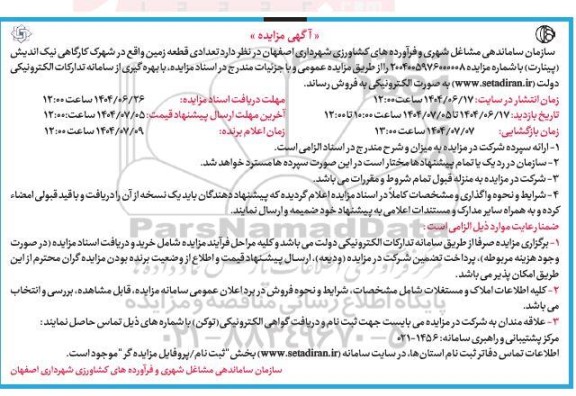 « آگهی مزایده »
سازمان ساماندهی مشاغل شهری و فرآورده های کشاورزی شهرداری اصفهان در نظر دارد تعدادی قطعه زمین واقع در شهرک کارگاهی نیک اندیش
(پینارت) با شماره مزایده ۲۰۰۴۰۰۵۹۷۶۰۰۰۰۰۸ را از طریق مزایده عمومی و با جزئیات مندرج در اسناد مزایده، با بهره گیری از سامانه تدارکات الکترونیکی
دولت (www.setadiran.ir) به صورت الکترونیکی به فروش رساند.
زمان انتشار در سایت: ۱۴۰۴/۰۶/۱۷ ساعت ۱۲:۰۰ مهلت دریافت اسناد مزایده: ۱۴۰۴/۰۶/۲۶ ساعت ۱۲:۰۰
تاریخ بازدید: ۱۴۰۴/۰۶/۱۷ تا ۱۴۰۴/۰۷/۰۵ ساعت ۱۰:۰۰ تا ۱۲:۰۰ آخرین مهلت ارسال پیشنهاد قیمت: ۱۴۰۴/۰۷/۰۵ ساعت: ۱۲:۰۰
زمان بازگشایی: ۱۴۰۴/۰۷/۰۷ ساعت ۱۳:۰۰ زمان اعلام برنده: ۱۴۰۴/۰۷/۰۹ ساعت ۱۲:۰۰
۱- ارائه سپرده شرکت در مزایده به میزان و شرح مندرج در اسناد الزامی است.
۲- سازمان در رد یک یا تمام پیشنهادها مختار است در این صورت سپرده ها مسترد خواهد شد.
۳- شرکت در مزایده به منزله قبول تمام شروط و مقررات می باشد.
۴- شرایط و نحوه واگذاری و مشخصات کاملا در اسناد مزایده اعلام گردیده که پیشنهاد دهندگان باید یک نسخه از آن را دریافت و با قید قبولی امضاء
کرده و به همراه سایر مدارک و مستندات اعلامی به پیشنهاد خود ضمیمه و ارسال نمایند.
ضمنا رعایت موارد ذیل الزامی است :
۱- برگزاری مزایده صرفا از طریق سامانه تدارکات الکترونیکی دولت می باشد و کلیه مراحل فرآیند مزایده شامل خرید و دریافت اسناد مزایده (در صورت
وجود هزینه مربوطه)، پرداخت تضمین شرکت در مزایده (ودیعه)، ارسال پیشنهاد قیمت و اطلاع از وضعیت برنده بودن مزایده گران محترم از این
طریق امکان پذیر می باشد.
۲- کلیه اطلاعات املاک و مستغلات شامل مشخصات، شرایط و نحوه فروش در برد اعلان عمومی سامانه مزایده، قابل مشاهده، بررسی و انتخاب
می باشد.
۳- علاقه مندان به شرکت در مزایده می بایست جهت ثبت نام و دریافت گواهی الکترونیکی (توکن) با شماره های ذیل تماس حاصل نمایند:
مرکز پشتیبانی و راهبری سامانه: ۱۴۵۶-۰۲۱
اطلاعات تماس دفاتر ثبت نام استان ها، در سایت سامانه (www.setadiran.ir) بخش "ثبت نام/پروفایل مزایده گر" موجود است.
سازمان ساماندهی مشاغل شهری و فرآورده های کشاورزی شهرداری اصفهان
ParsNamadData
پایگاه اطلاع رسانی مناقصه و مزایده
۰۲۱-۸۸۳۴۹۶۷۰-۵